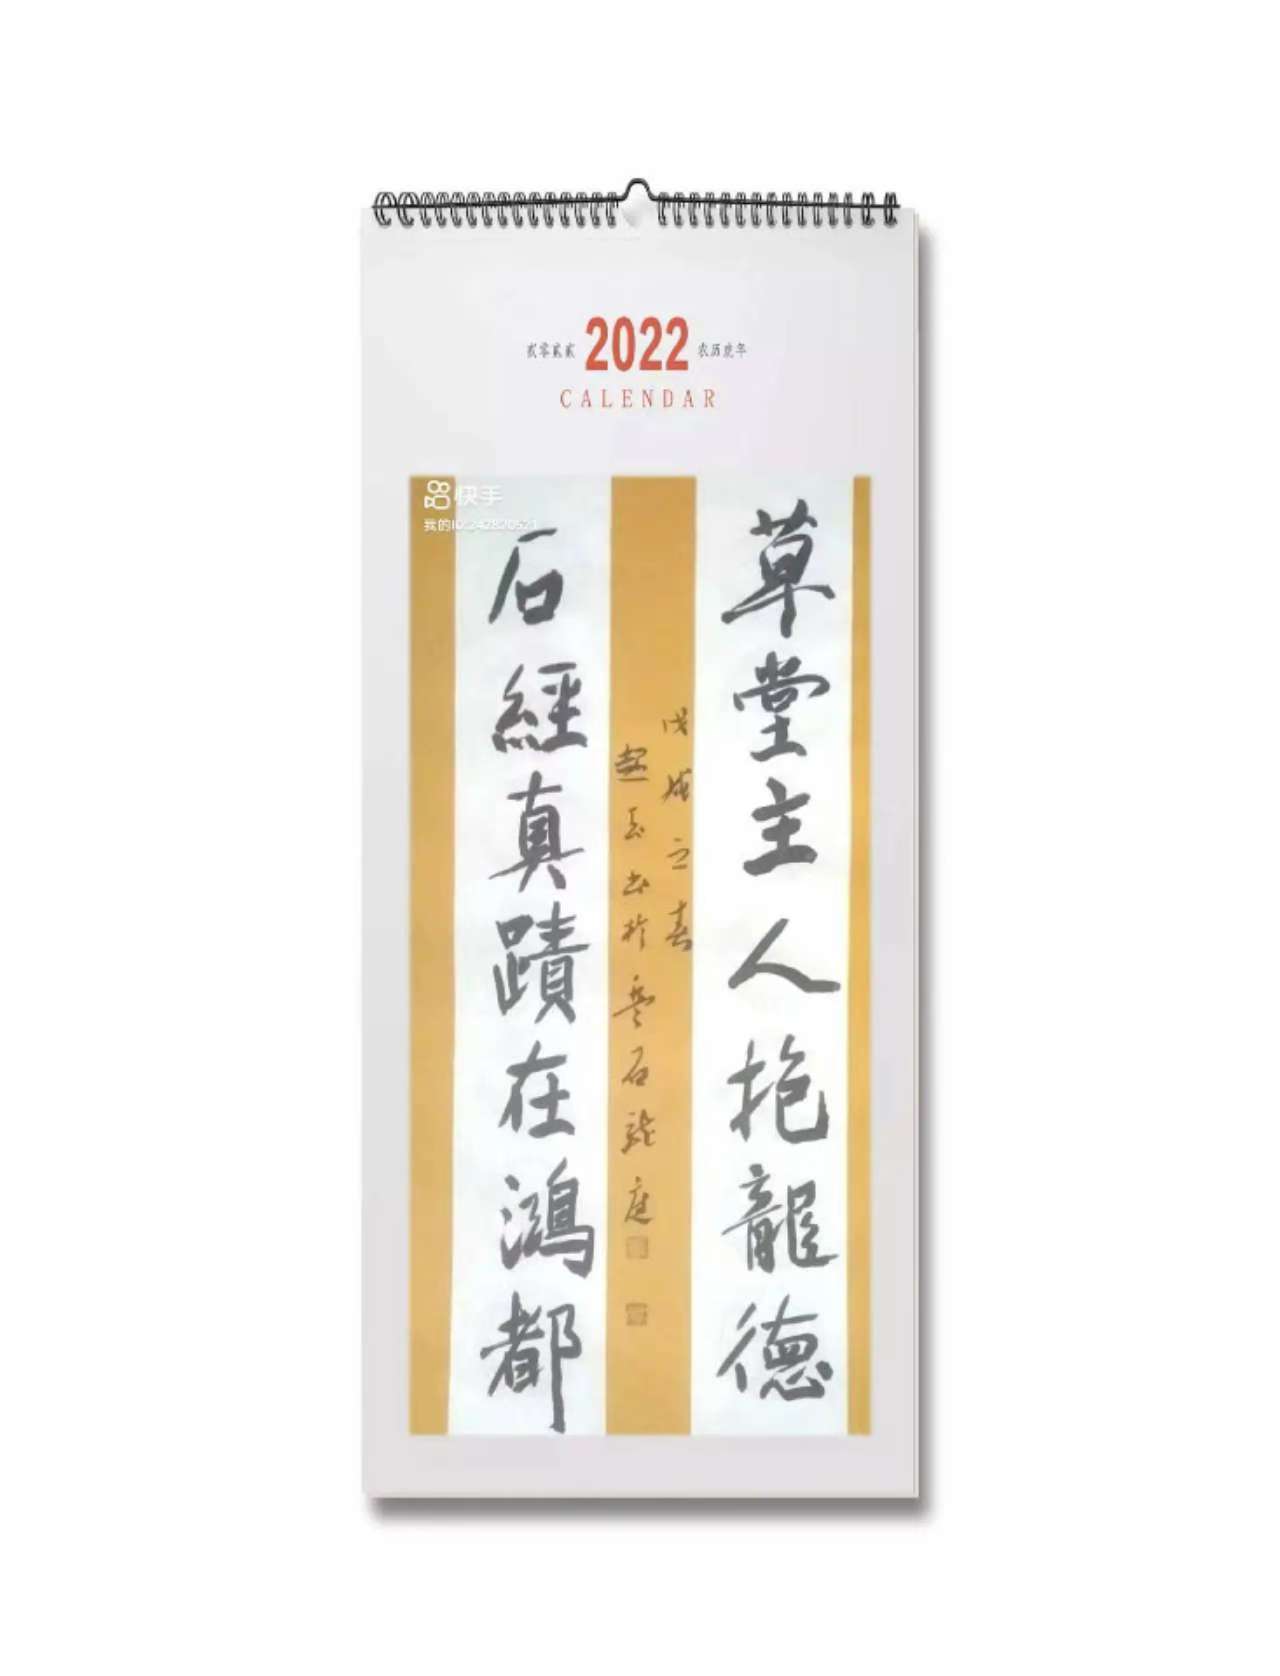 贰零贰贰 2022 农历虎年
CALENDAR
快手
我的ID:242820521
草堂主人抱龍德
石經真蹟在鴻都
戊戌之春
書於雲石龍庭